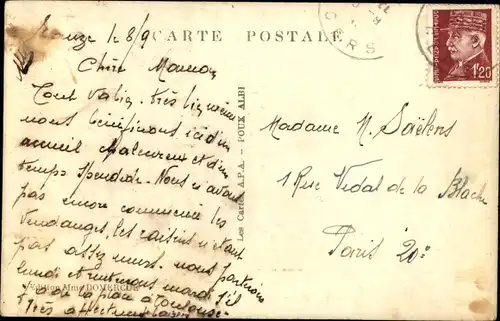 CARTE POSTALE
Eauze le 8/9
Chère Maman
Tout va bien, très bien même
nous bénéficions ici d'un
accueil chaleureux et d'un
temps splendide. Nous n'avons
pas encore commencé les
vendanges, les raisins n'étant
pas assez murs. nous partirons
lundi et rentrerons mardi s'il
a de la place à Toulouse.
Très affectueux baisers
Edition Mme DOMERCUE
Les Cartes A.P.A. - POUX ALBI
GERS
1f20
Madame M. Saëlens
1 Rue Vidal de la Blache
Paris 20e